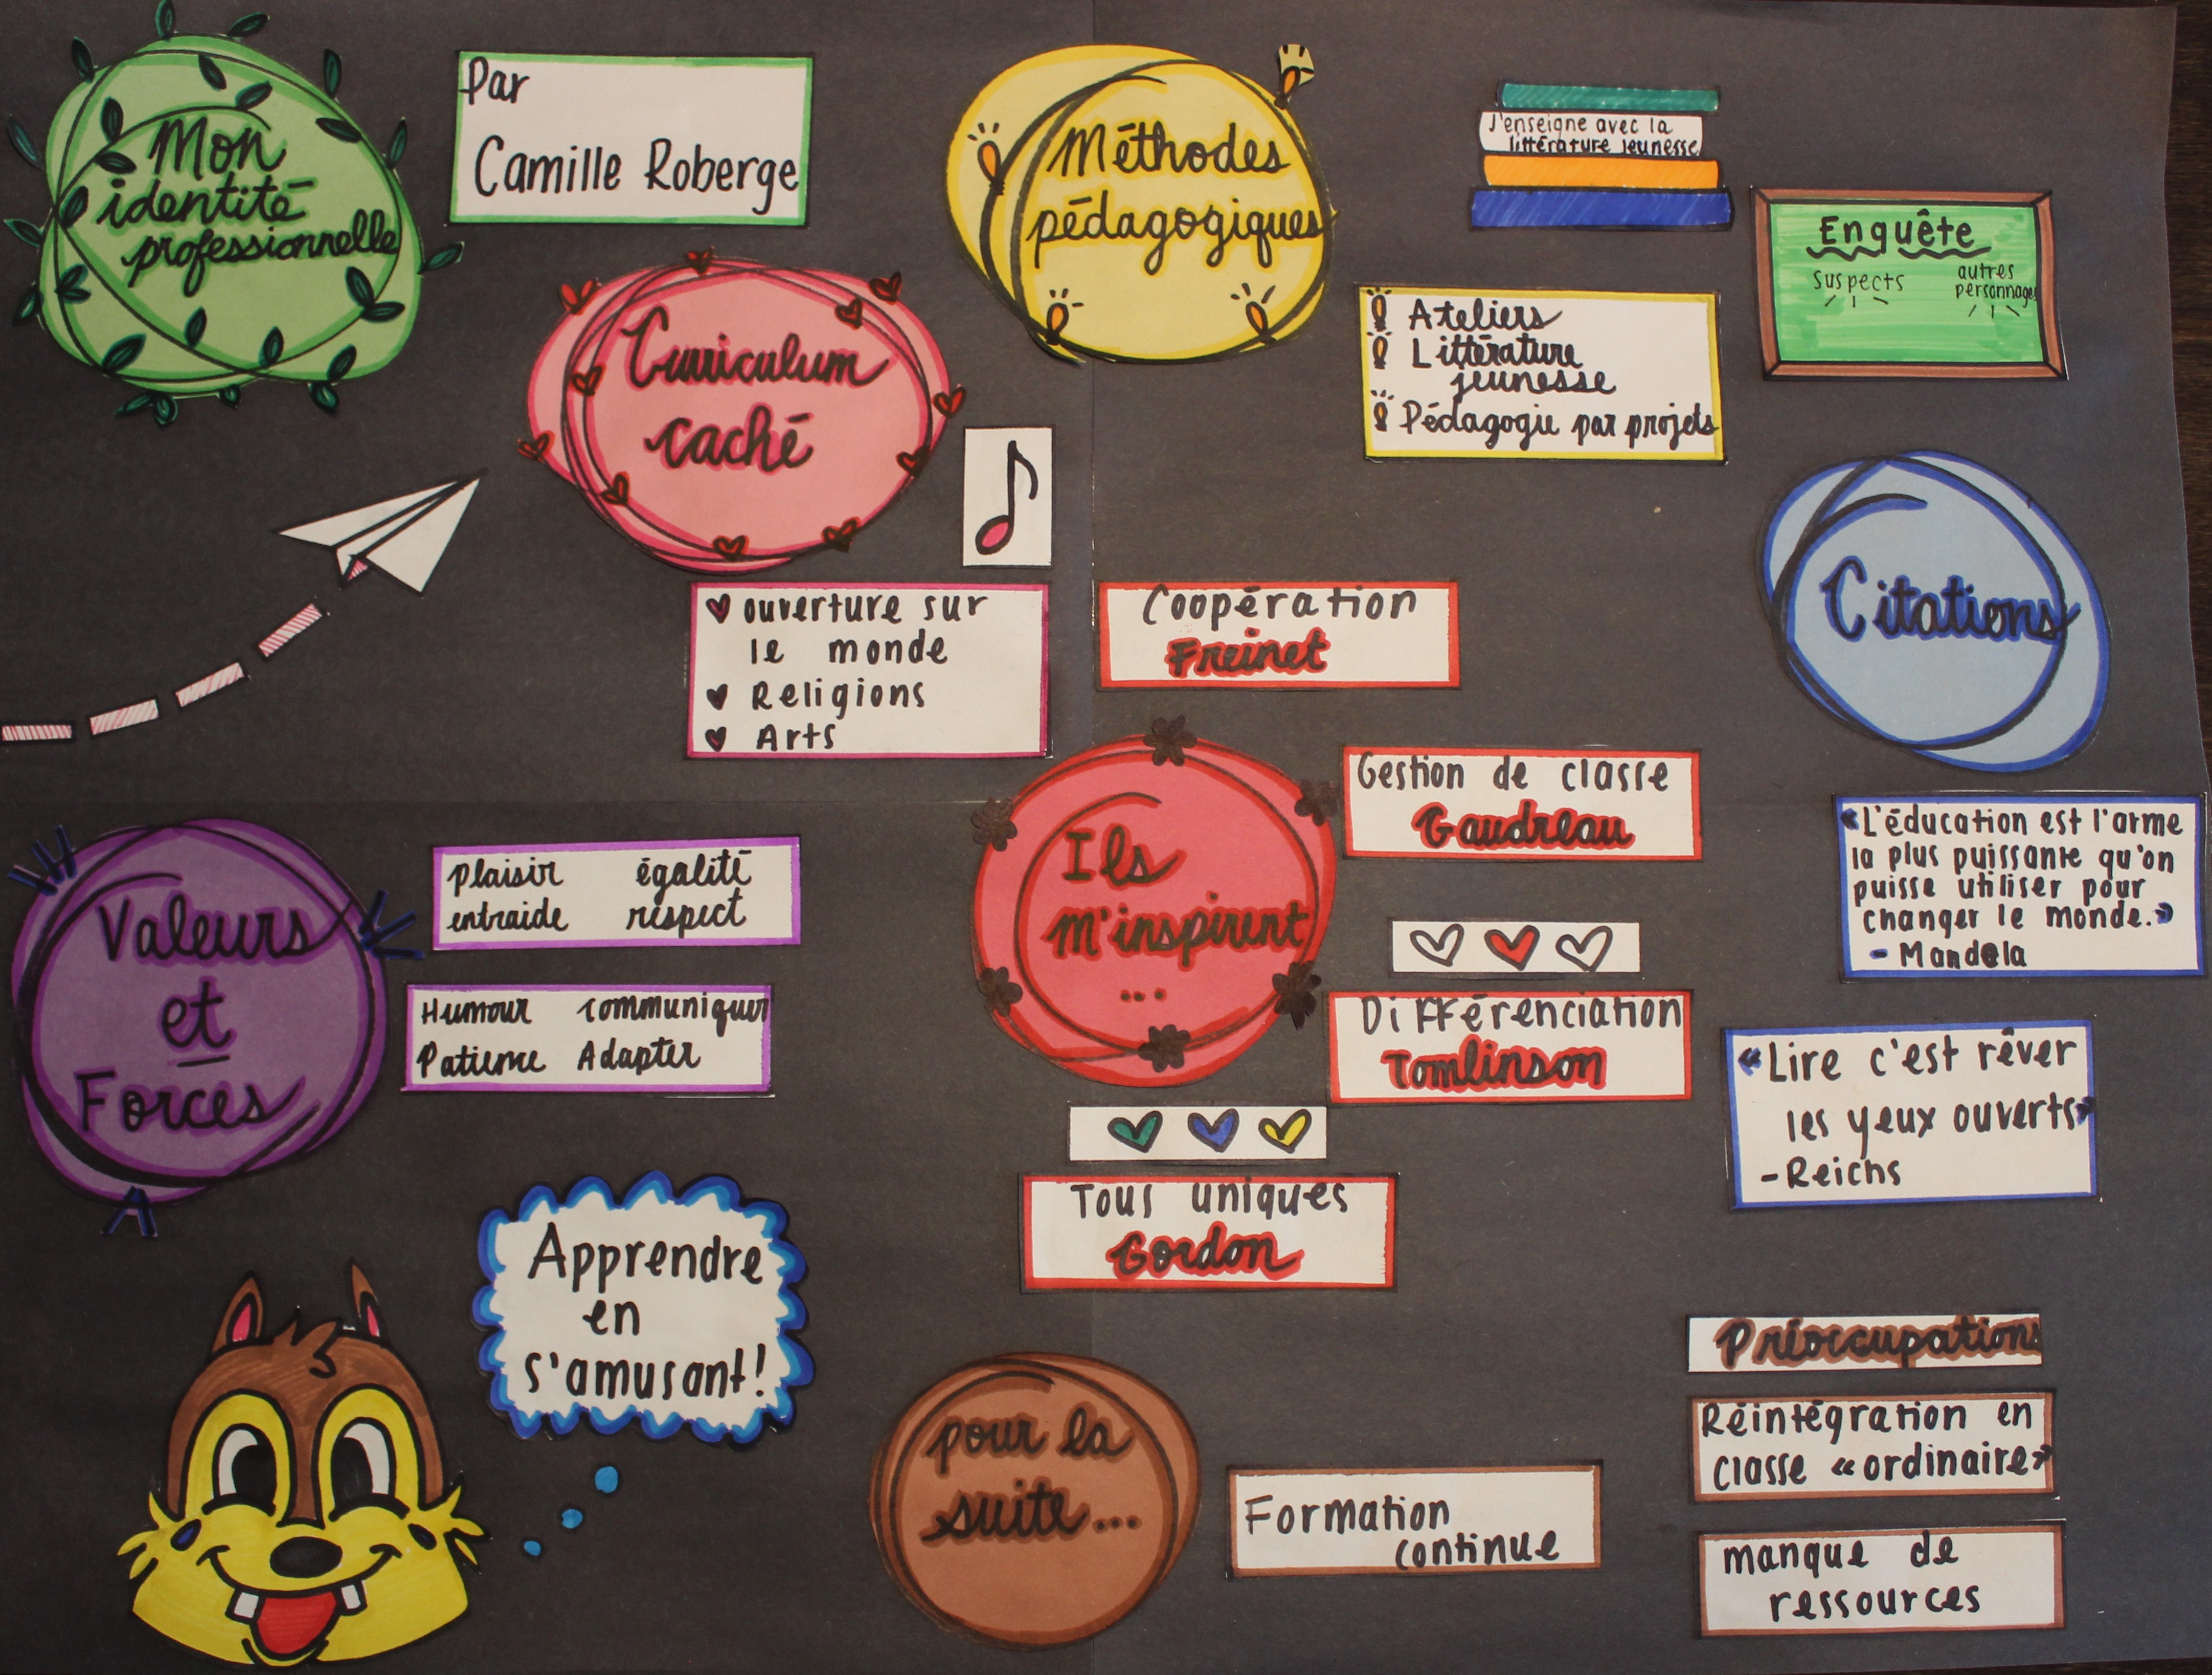 Mon
identité
professionnelle
Par
Camille Roberge
Curriculum
caché
ouverture sur
le monde
Religions
Arts
Méthodes
pédagogiques
J'enseigne avec la
littérature jeunesse
Enquête
suspects
autres
personnages
Ateliers
Littérature
jeunesse
Pédagogie par projets
Citations
«L'éducation est l'arme
la plus puissante qu'on
puisse utiliser pour
changer le monde.»
- Mandela
«Lire c'est rêver
les yeux ouverts»
- Reichs
Coopération
Freinet
Ils
m'inspirent
...
Gestion de classe
Gaudreau
Différenciation
Tomlinson
Tous uniques
Gordon
Valeurs
et
Forces
plaisir égalité
entraide respect
Humour communiquer
Patience Adapter
Apprendre
en
s'amusant!
pour la
suite...
Formation
continue
Préoccupations
Réintégration en
classe «ordinaire»
manque de
ressources